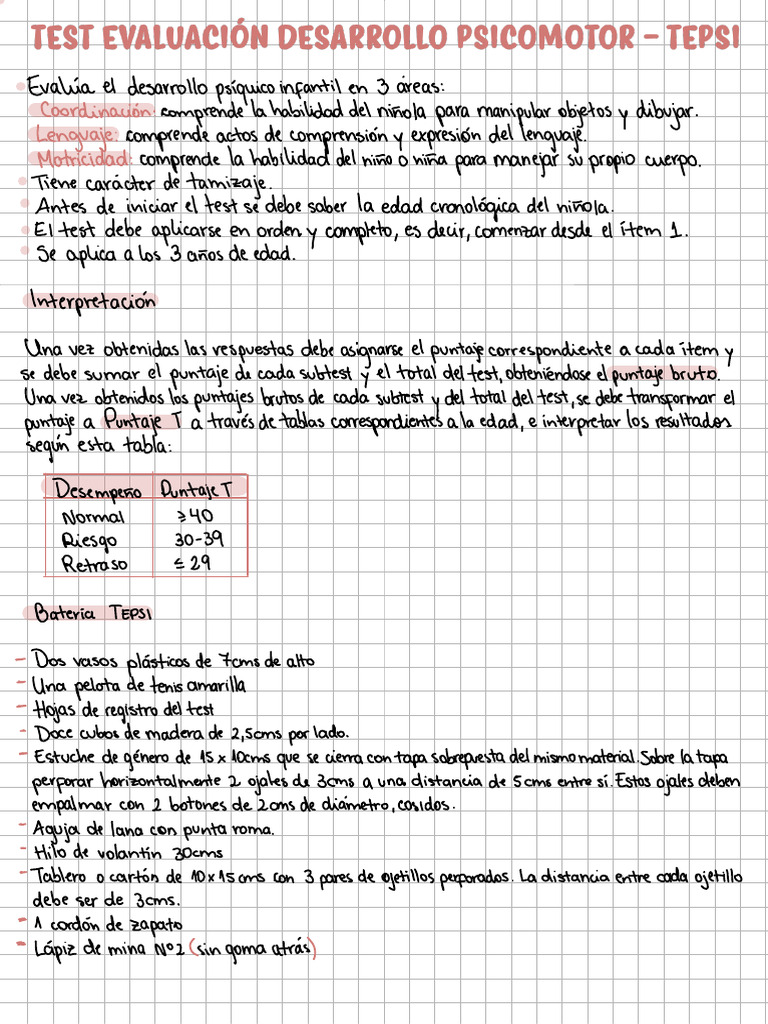 TEST EVALUACIÓN DESARROLLO PSICOMOTOR – TEPSI
• Evalúa el desarrollo psíquico infantil en 3 áreas:
Coordinación: comprende la habilidad del niño/a para manipular objetos y dibujar.
Lenguaje: comprende actos de comprensión y expresión del lenguaje.
Motricidad: comprende la habilidad del niño o niña para manejar su propio cuerpo.
• Tiene carácter de tamizaje.
• Antes de iniciar el test se debe saber la edad cronológica del niño/a.
• El test debe aplicarse en orden y completo, es decir, comenzar desde el ítem 1.
• Se aplica a los 3 años de edad.
Interpretación
Una vez obtenidas las respuestas debe asignarse el puntaje correspondiente a cada ítem y
se debe sumar el puntaje de cada subtest y el total del test, obteniéndose el puntaje bruto.
Una vez obtenidos los puntajes brutos de cada subtest y del total del test, se debe transformar el
puntaje a Puntaje T a través de tablas correspondientes a la edad, e interpretar los resultados
según esta tabla:
Desempeño Puntaje T
Normal ≥40
Riesgo 30-39
Retraso ≤ 29
Bateria TEPSI
- Dos vasos plásticos de 7cms de alto
- Una pelota de tenis amarilla
- Hojas de registro del test
- Doce cubos de madera de 2,5cms por lado.
- Estuche de género de 15 x 10cms que se cierra con tapa sobrepuesta del mismo material. Sobre la tapa
perporar horizontalmente 2 ojales de 3cms a una distancia de 5cms entre sí. Estos ojales deben
empalmar con 2 botones de 2cms de diámetro, cosidos.
- Aguja de lana con punta roma.
- Hilo de volantín 30cms
- Tablero o cartón de 10x15cms con 3 pares de ojetillos perporados. La distancia entre cada ojetillo
debe ser de 3cms.
- 1 cordón de zapato
- Lápiz de mina Nº2 (sin goma atrás)